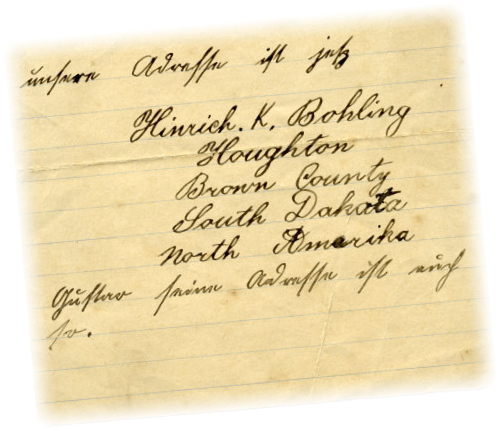 unsere Adresse ist jetz
Hinrich. K. Bohling
Houghton
Brown County
South Dakata
North Amerika
Gustav seine Adresse ist auch
so.